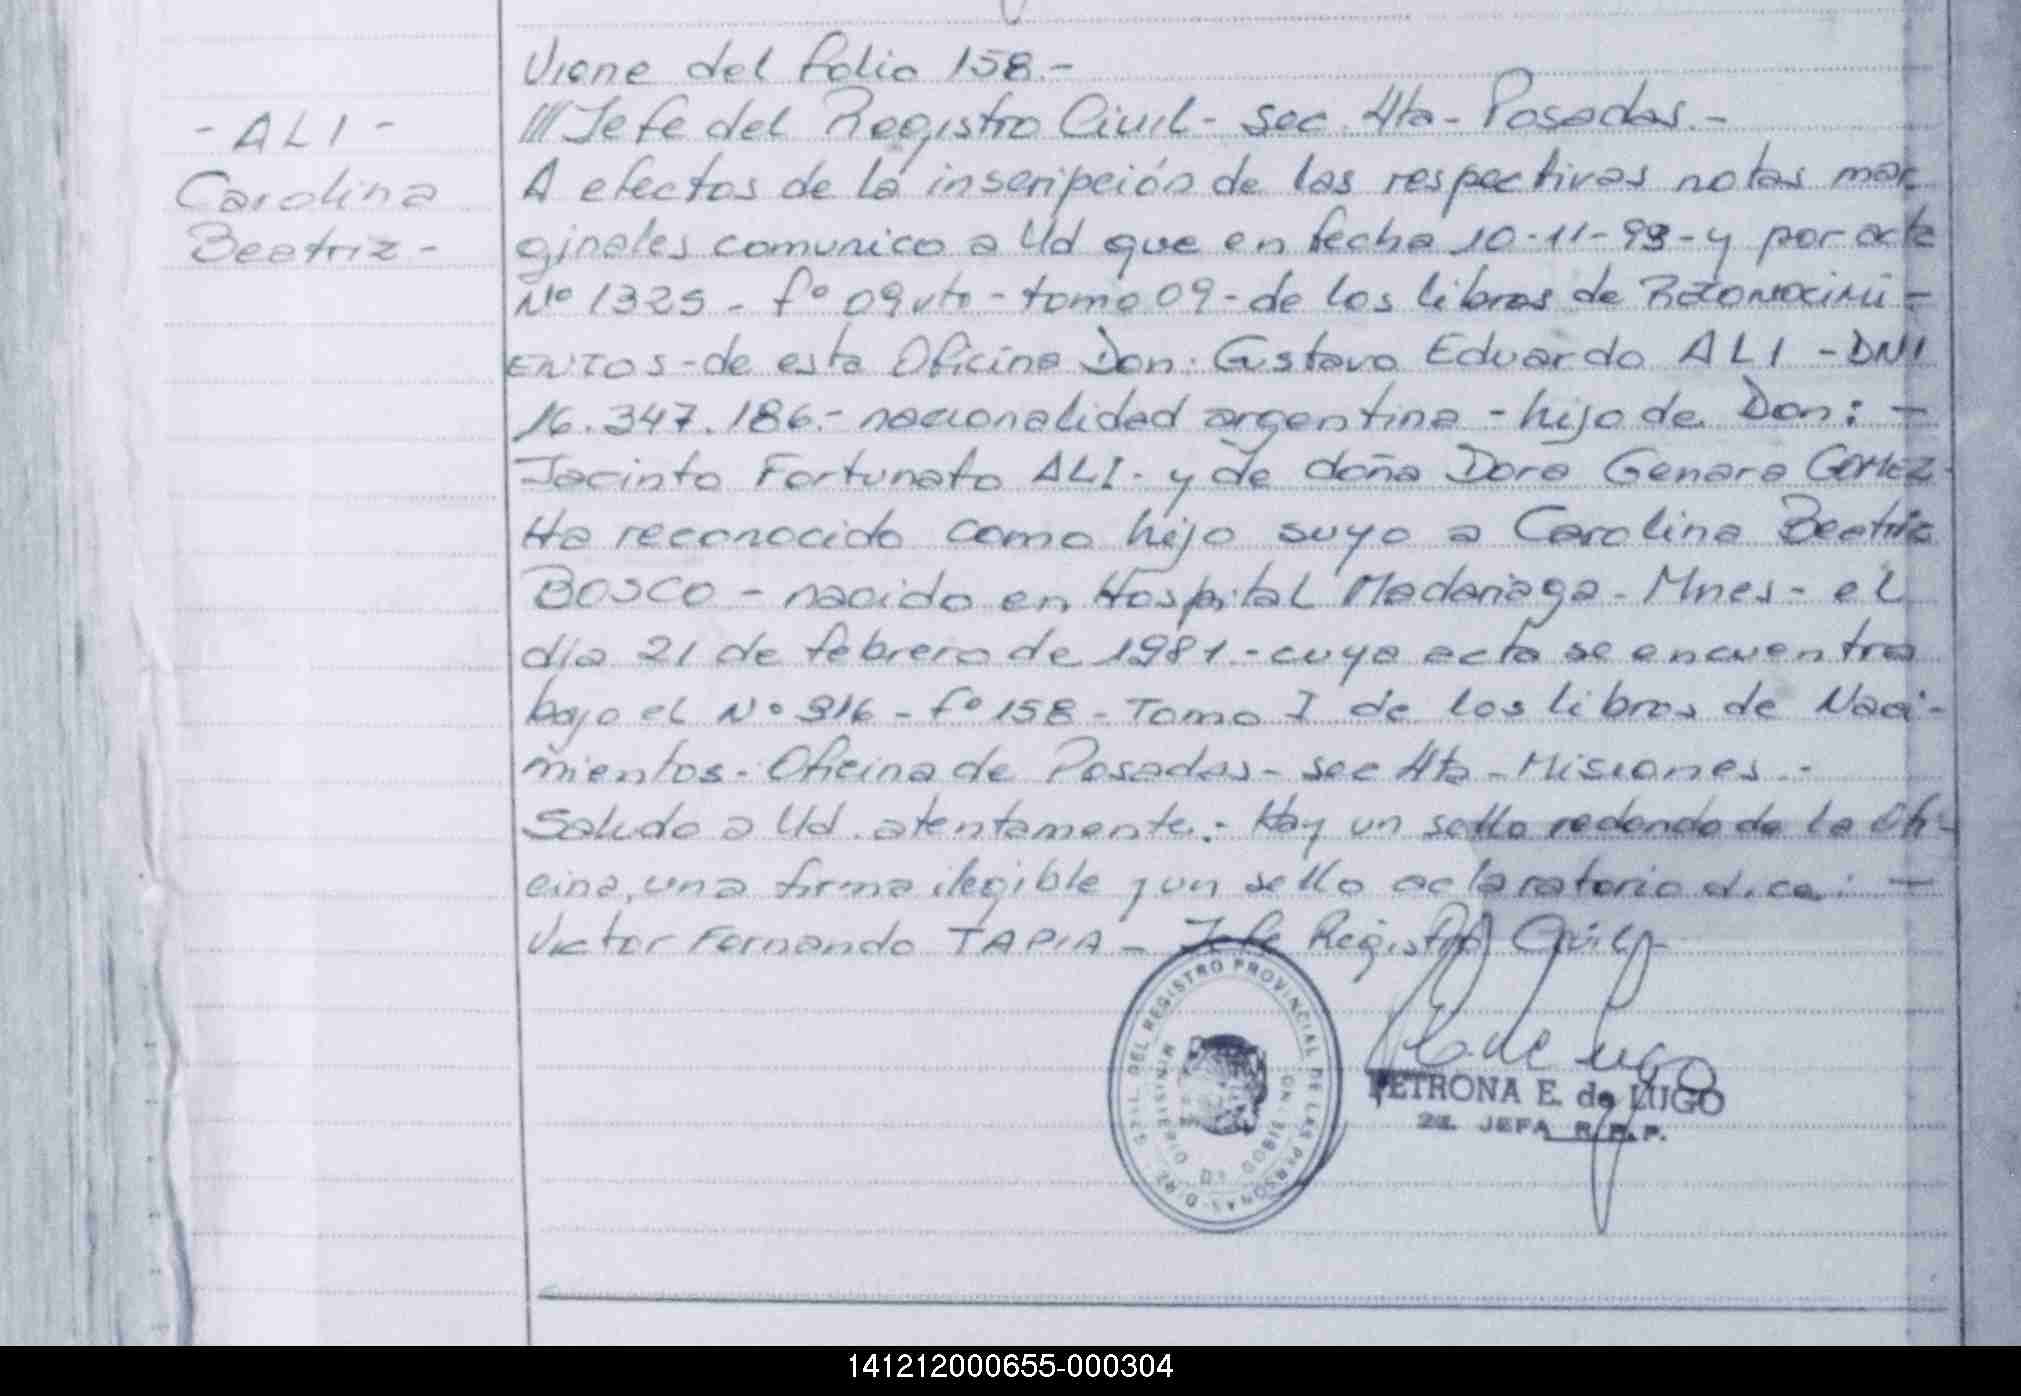 Viene del folio 158.-
/// Jefe del Registro Civil - Sec. 4ta - Posadas.-
- ALI -
Carolina
Beatriz -
A efectos de la inscripción de las respectivas notas mar
ginales comunico a Ud que en fecha 10-11-93 - y por acta
Nº 1325 - fº 09 vto - tomo 09 - de los libros de RECONOCIMI -
ENTOS - de esta Oficina Don: Gustavo Eduardo ALI - DNI
16.347.186.- nacionalidad argentina - hijo de Don: -
Jacinto Fortunato ALI - y de doña Dora Genara GOMEZ -
Ha reconocido como hijo suyo a Carolina Beatriz
BOSCO - nacido en Hospital Madariaga - Mnes - el
día 21 de febrero de 1981.- cuya acta se encuentra
bajo el Nº 316 - fº 158 - Tomo I de los libros de Naci -
mientos - Oficina de Posadas - sec 4ta - Misiones.-
Saludo a Ud. atentamente.- Hay un sello redondo de la Ofi -
cina, una firma ilegible y un sello aclaratorio dice: -
Victor Fernando TAPIA - Jefe Registro Civil -
DIRE. GRAL. DEL REGISTRO PROVINCIAL DE LAS PERSONAS
MINISTERIO DE GOBIERNO
E. de Lugo
PETRONA E. de LUGO
2a. JEFA R.P.P.
141212000655-000304